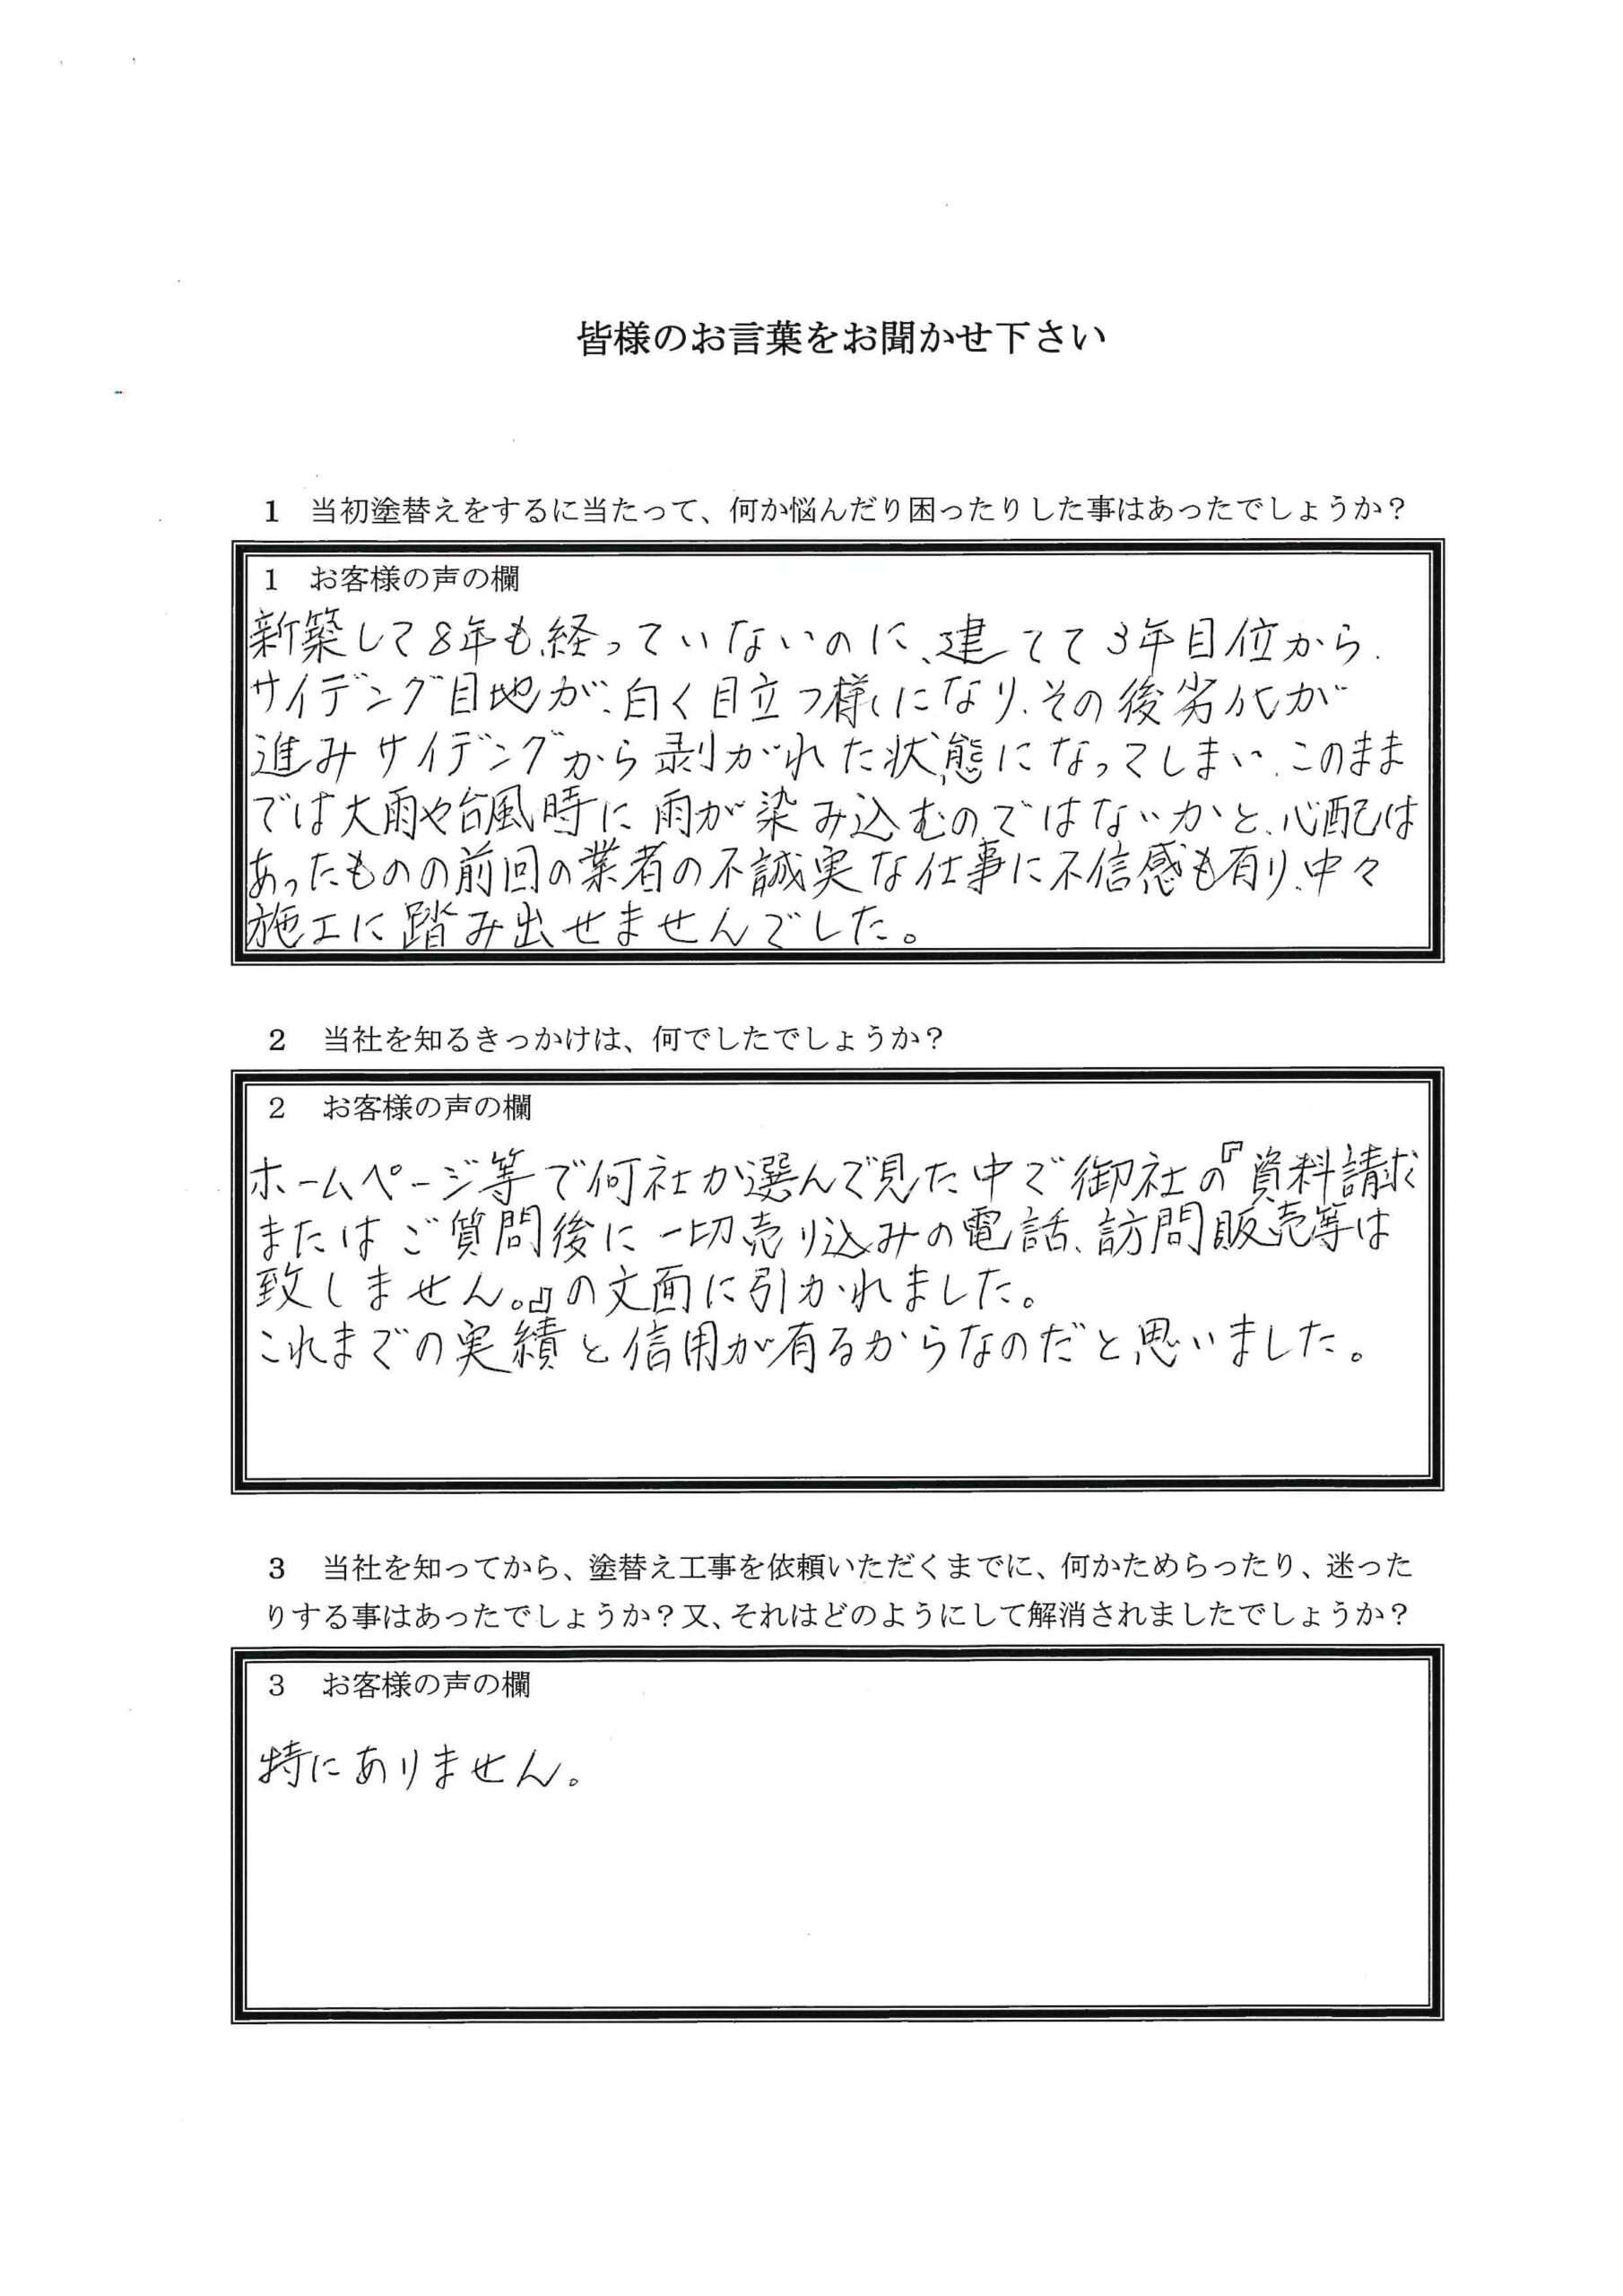 皆様のお言葉をお聞かせ下さい
1 当初塗替えをするに当たって、何か悩んだり困ったりした事はあったでしょうか？
1 お客様の声の欄
新築して8年も経っていないのに、建てて3年目位から、
サイデング目地が、白く目立つ様になり、その後劣化が
進みサイデングから剥がれた状態になってしまい、このまま
では大雨や台風時に雨が染み込むのではないかと、心配は
あったものの前回の業者の不誠実な仕事に不信感も有り、中々
施工に踏み出せませんでした。
2 当社を知るきっかけは、何でしたでしょうか？
2 お客様の声の欄
ホームページ等で何社か選んで見た中で御社の『資料請求
またはご質問後に一切売り込みの電話、訪問販売等は
致しません。』の文面に引かれました。
これまでの実績と信用が有るからなのだと思いました。
3 当社を知ってから、塗替え工事を依頼いただくまでに、何かためらったり、迷った
りする事はあったでしょうか？又、それはどのようにして解消されましたでしょうか？
3 お客様の声の欄
特にありません。